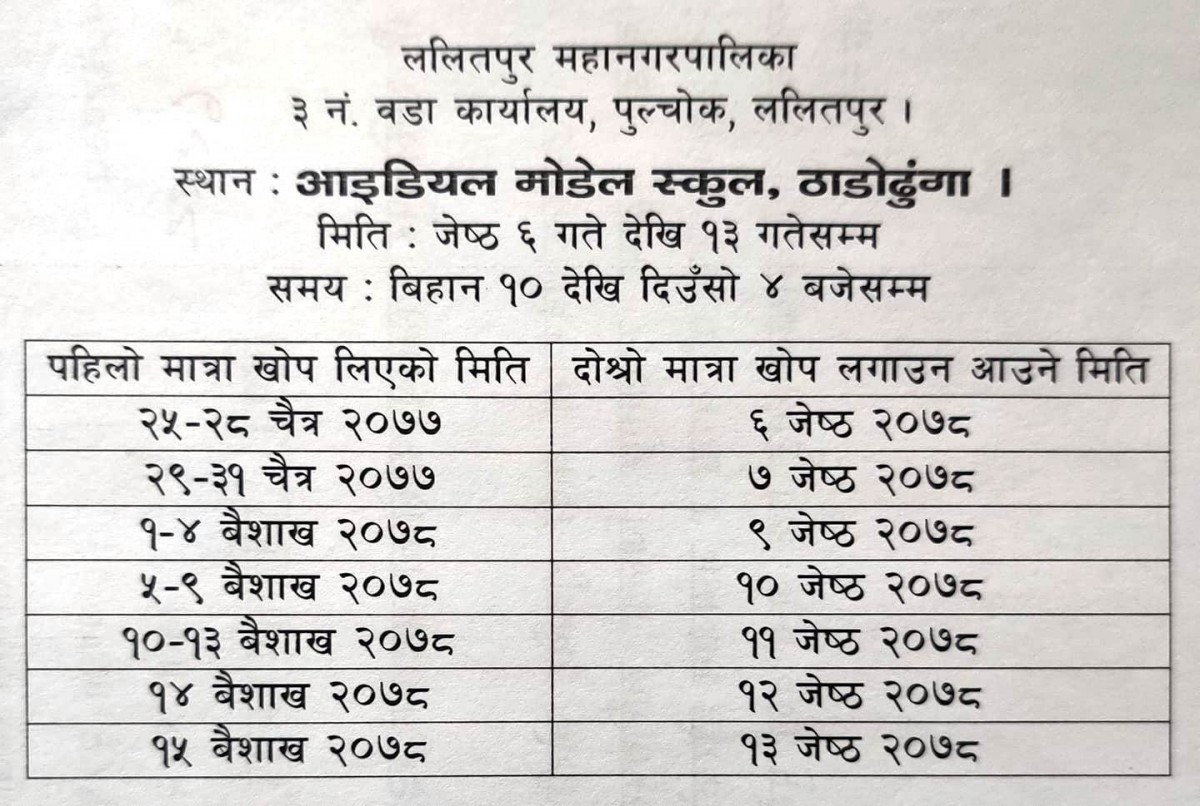 ललितपुर महानगरपालिका
३ नं. वडा कार्यालय, पुल्चोक, ललितपुर ।
स्थान : आइडियल मोडेल स्कुल, ठाडोढुंगा ।
मिति : जेष्ठ ६ गते देखि १३ गतेसम्म
समय : बिहान १० देखि दिउँसो ४ बजेसम्म
पहिलो मात्रा खोप लिएको मिति दोश्रो मात्रा खोप लगाउन आउने मिति
२५-२८ चैत्र २०७७ ६ जेष्ठ २०७८
२९-३१ चैत्र २०७७ ७ जेष्ठ २०७८
१-४ बैशाख २०७८ ९ जेष्ठ २०७८
५-९ बैशाख २०७८ १० जेष्ठ २०७८
१०-१३ बैशाख २०७८ ११ जेष्ठ २०७८
१४ बैशाख २०७८ १२ जेष्ठ २०७८
१५ बैशाख २०७८ १३ जेष्ठ २०७८